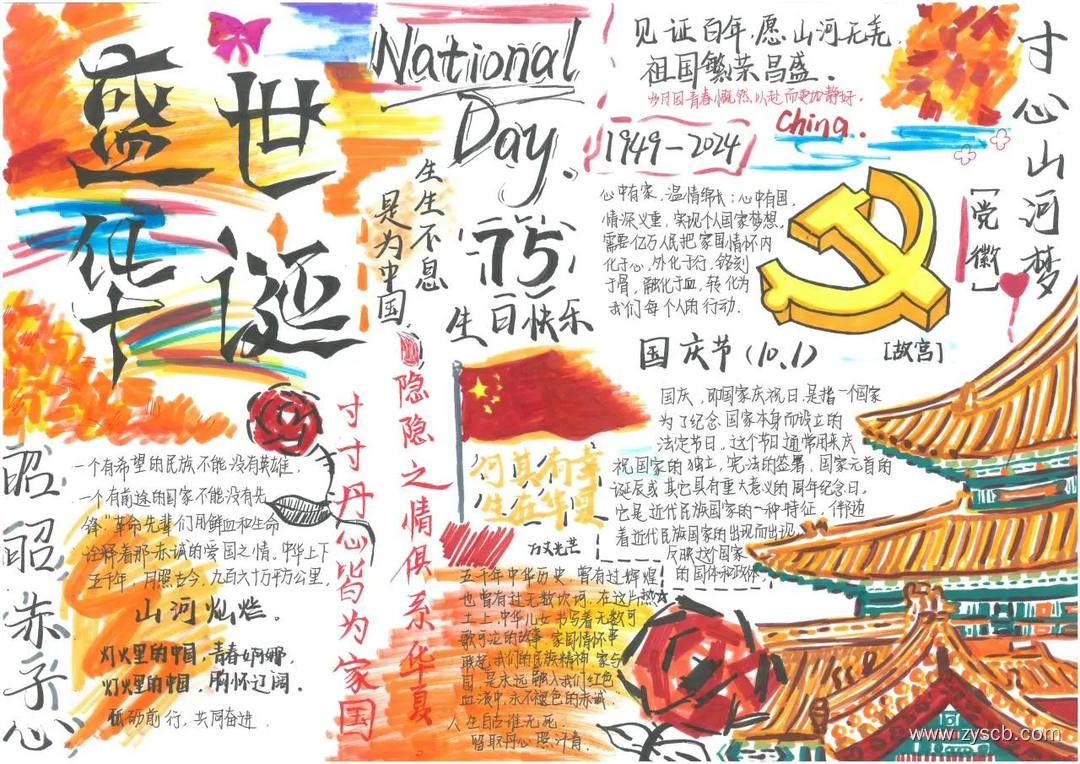 盛世
华诞
National
Day.
生生不息
是为中国
75
生日快乐
见证百年,愿山河无恙,
祖国繁荣昌盛。
China.
1949-2024
心中有家,温情绵长;心中有国,
情深义重,实现个人国家梦想,
需要亿万人民把家国情怀内
化于心,外化于行,铭刻
于骨,融化于血,转化为
我们每个人的行动.
寸心山河梦
[党徽]
国庆节(10.1)
[故宫]
国庆,即国家庆祝日,是指一个国家
为了纪念国家本身而设立的
法定节日。这个节日通常用来庆
祝国家的独立,宪法的签署,国家元首的
诞辰或其它具有重大意义的周年纪念日。
它是近代民族国家的一种特征,伴随
着近代民族国家的出现而出现,
反映这个国家
的国体和政体,
昭昭赤子心
一个有希望的民族不能没有英雄,
一个有前途的国家不能没有先
锋"革命先辈们用鲜血和生命
诠释着那赤诚的爱国之情。中华上下
五千年,月照古今,九百六十万平方公里,
山河灿烂。
灯火里的中国,青春婀娜,
灯火里的中国,胸怀辽阔.
砥砺前行,共同奋进.
寸寸丹心皆为家国
隐隐之情俱系华夏
何其有幸
生在华夏
万丈光芒
五千年中华历史,曾有过辉煌
也曾有过无数坎坷,在这片热
土上,中华儿女书写着无数可
歌可泣的故事,家国情怀早
我们的民族精神,家与
国,是永远融入我们红色
血液中,永不褪色的赤诚"
人生自古谁无死.
留取丹心照汗青.
www.izyscb.com